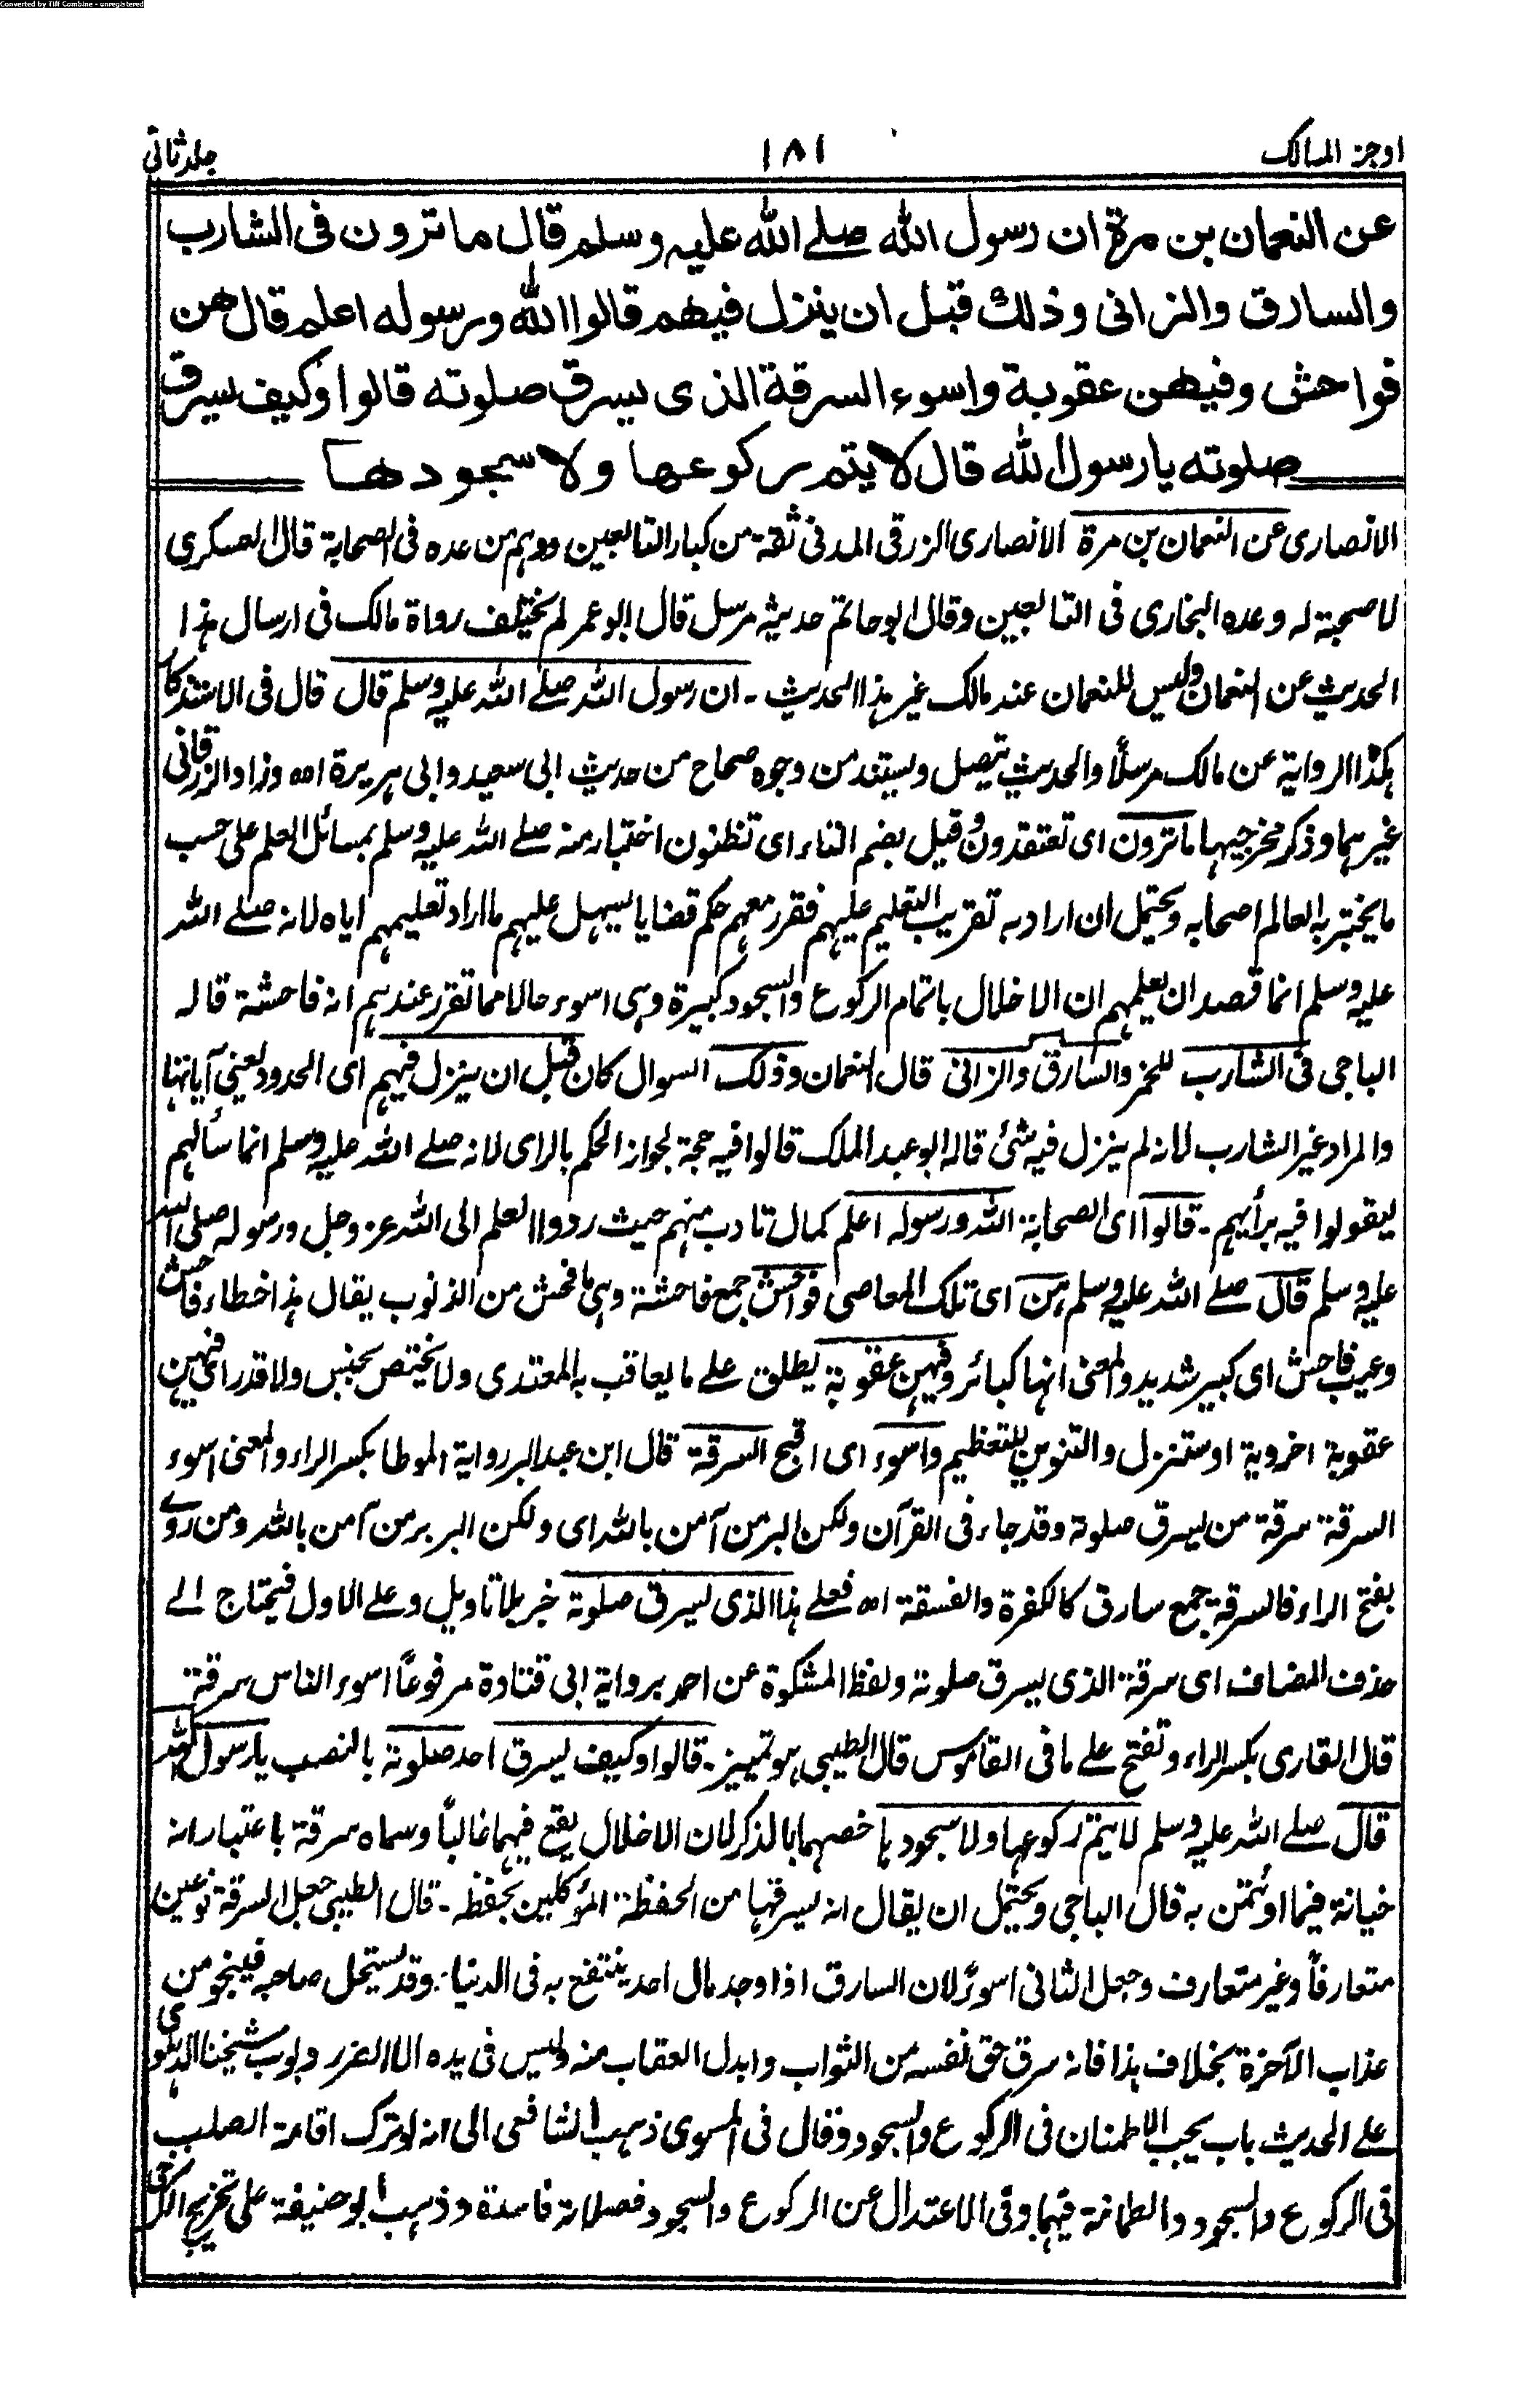 Converted by Tiff Combine - unregistered
اوجز المسالک
١٨١
جلد ثانی
عن النعمان بن مرة ان رسول الله صلے الله علیہ وسلم قال ما ترون فی الشارب
والسارق والزانی وذلك قبل ان ینزل فیهم قالوا الله ورسوله اعلم قال هن
فواحش وفیهن عقوبة واسوء السرقة الذی یسرق صلوته قالوا وکیف یسرق
صلوته یا رسول الله قال لا یتم رکوعها ولا سجودها
الانصاری عن النعمان بن مرة الانصاری الزرقی المدنی ثقة من کبار التابعین ووہم من عده فی الصحابة قال العسکری
لا صحبة لہ وعده البخاری فی التابعین وقال ابو حاتم حدیثہ مرسل قال ابو عمر لم یختلف رواة مالک فی ارسال ہذا
الحدیث عن النعمان ولیس للنعمان عند مالک غیر ہذا الحدیث ۔ ان رسول الله صلے الله علیہ وسلم قال قال فی الاستذکار
ہکذا الروایة عن مالک مرسلاً والحدیث یتصل ویستند من وجوه صحاح من حدیث ابی سعید وابی ہریرة اھ وزاد الزرقانی
غیرہما وذکر مخرجیہا ما ترون ای تعتقدون وقیل بضم التاء ای تظنون اختبار منہ صلے الله علیہ وسلم بمسائل العلم علی حسب
ما یختبر بہ العالم اصحابہ ویحتمل ان اراد بہ تقریب التعلیم علیہم فقرر معہم حکم قضایا یسہل علیہم ما اراد تعلیمہم ایاه لانہ صلے الله
علیہ وسلم انما قصد ان یعلمہم ان الاخلال باتمام الرکوع والسجود کبیرة وہی اسوء حالا مما تقرر عندہم انہ فاحشة قالہ
الباجی فی الشارب للخمر والسارق والزانی قال النعمان وذلک السوال کان قبل ان ینزل فیہم ای الحدود یعنی آیاتہا
والمراد غیر الشارب لانہ لم ینزل فیہ شئ قالہ ابو عبد الملک قالوا فیہ حجة لجواز الحکم بالرای لانہ صلے الله علیہ وسلم انما سألہم
لیقولوا فیہ برأیہم ۔ قالوا ای الصحابة الله ورسولہ اعلم کمال تادب منہم حیث ردوا العلم الی الله عز وجل ورسولہ صلی الله
علیہ وسلم قال صلے الله علیہ وسلم ہن ای تلک المعاصی فواحش جمع فاحشة وہی ما فحش من الذنوب یقال ہذا خطاء فاحش
وعیب فاحش ای کبیر شدید والمعنی انہا کبائر وفیہن عقوبة یطلق علے ما یعاقب بہ المعتدی ولا یختص بجنس ولا قدر ای فیہن
عقوبة اخرویة او ستنزل والتنوین للتعظیم واسوء ای اقبح السرقة قال ابن عبد البر روایة الموطا بکسر الراء والمعنی اسوء
السرقة سرقة من یسرق صلوتہ وقد جاء فی القرآن ولکن البر من آمن بالله ای ولکن البر بر من آمن بالله ومن روے
بفتح الراء فالسرقة جمع سارق کالکفرة والفسقة اھ فعلے ہذا الذی یسرق صلوتہ خبر بلا تاویل وعلے الاول فیحتاج الے
حذف المضاف ای سرقة الذی یسرق صلوتہ ولفظ المشکوة عن احمد بروایة ابی قتادة مرفوعاً اسوء الناس سرقة
قال القاری بکسر الراء وتفتح علے ما فی القاموس قال الطیبی ہو تمییز ۔ قالوا وکیف یسرق احد صلوتہ بالنصب یا رسول الله
قال صلے الله علیہ وسلم لا یتم رکوعہا ولا سجودہا خصہما بالذکر لان الاخلال یقع فیہما غالباً وسماه سرقة باعتبار انہ
خیانة فیما اؤتمن بہ قال الباجی ویحتمل ان یقال انہ یسرقہا من الحفظة المؤکلین بحفظہ ۔ قال الطیبی جعل السرقة نوعین
متعارفاً وغیر متعارف وجعل الثانی اسوأ لان السارق اذا وجد مال احد ینتفع بہ فی الدنیا وقد یستحل صاحبہ فینجو من
عذاب الآخرة بخلاف ہذا فانہ سرق حق نفسہ من الثواب وابدل العقاب منہ ولیس فی یده الا الضرر وبوب شیخنا الدہلوی
علے الحدیث باب یجب الاطمنان فی الرکوع والسجود وقال فی المسوی ذہب الشافعی الی انہ لو ترک اقامة الصلب
فی الرکوع والسجود والطمانة فیہما وفی الاعتدال عن الرکوع والسجود فصلاتہ فاسدة وذہب ابو حنیفة علی تخریج الکرخی